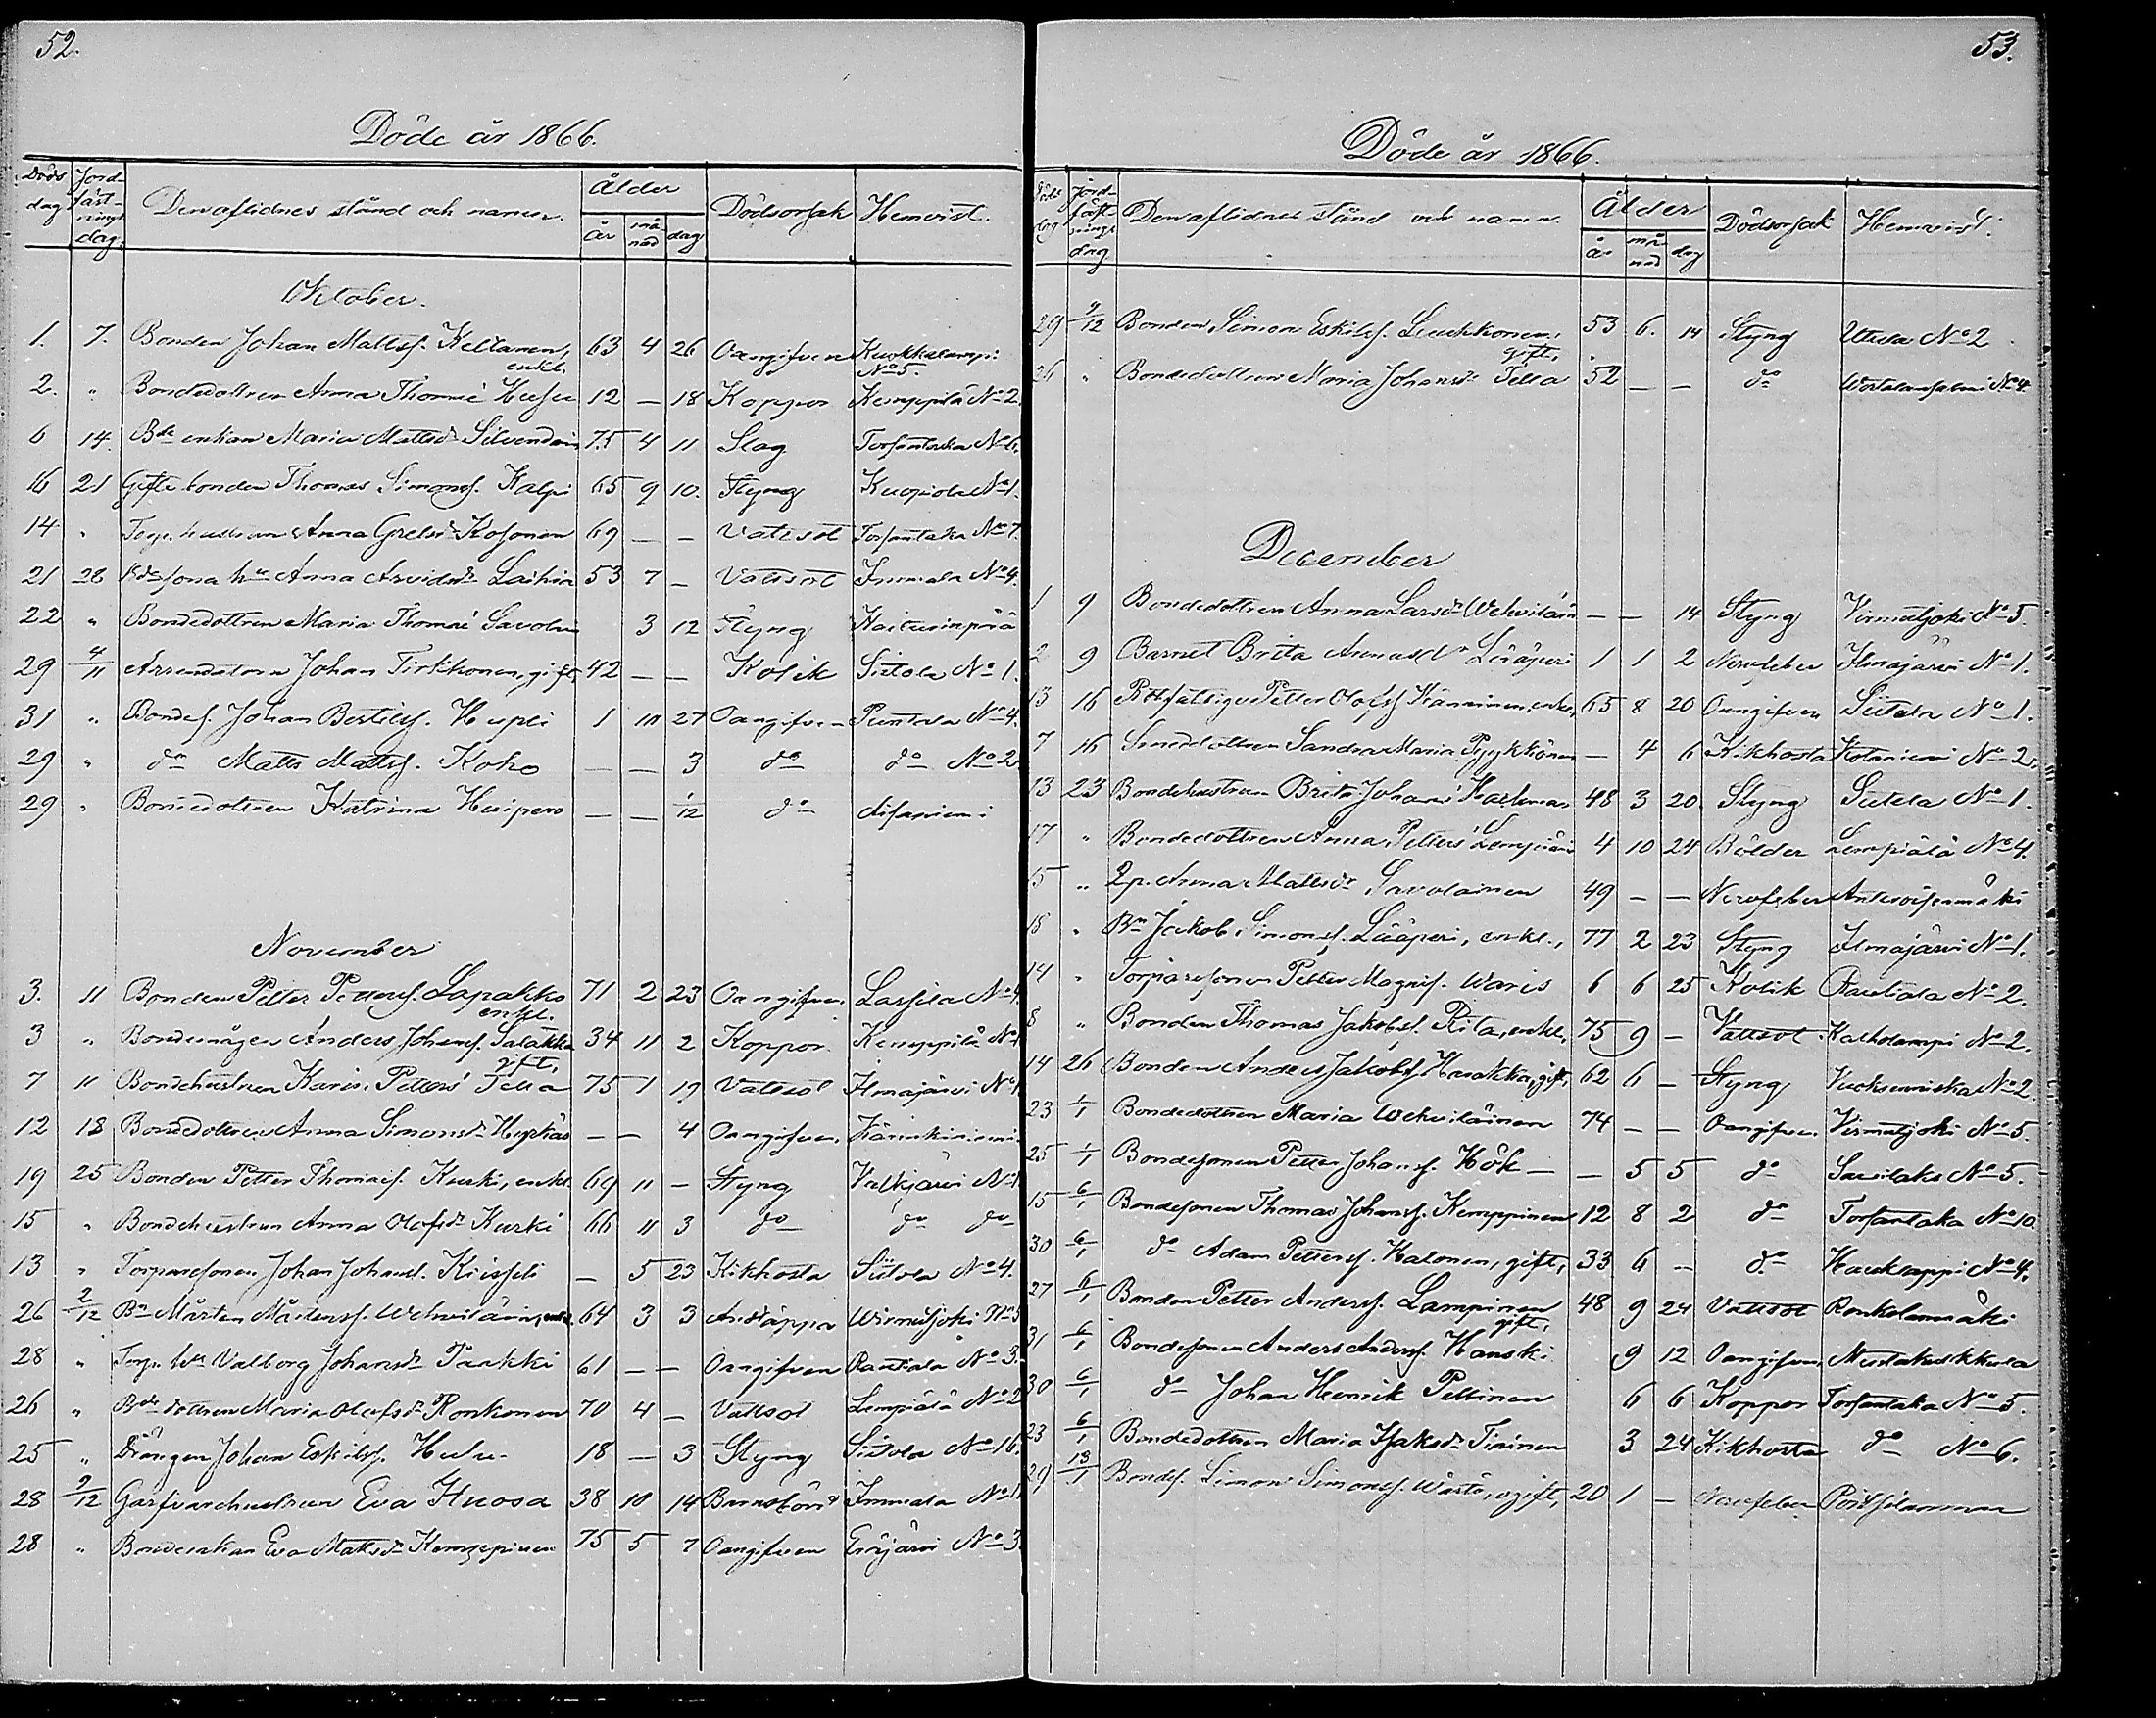 52.
Döde år 1866.
Döds dag Jordfästnings dag. Den aflidnes stånd och namn. Ålder år månad dag Dödsorsak Hemvist.
Oktober.
1. 7. Bonden Johan Mattss. Keltanen, enkl. 63 4 26 Oangifven Kuokkalampi No 5.
2. " Bondedottren Anna Thomæ Husu 12 — 18 Koppor Kemppilä No 2.
6 14. Bde enkan Maria Mattsdr 75 4 11 Slag Torsantaka No 6.
16 21 Gifte bonden Thomas Simonss. Kalpi 65 9 10. Styng No 1.
14 " Torp. hustrun Anna Grelsdr Kosonen 69 — — Vattsot Torsantaka No 7.
21 28 Bdesona hu Anna Arvidsdr Laihia 53 7 — Vattsot Immala No 4.
22 " Bondedottren Maria Thomæ 3 12 Styng
29 4/11 Arrendatorn Johan Tirkkonen, gift 42 — — Kolik Siitola No 1.
31 " Bondes. Johan Bertilss. Hupli 1 10 27 Oangifven Puntala No 4.
29 " do Matts Mattss. Koho — — 3 do do No 2.
29 " Bondedottren Katrina — — 1/12 do
November
3. 11 Bonden Petter Petterss. Lapakko enkl. 71 2 23 Oangifven Lassila No 4.
3 " Bondemågen Anders Johanss. Salakka gift, 34 11 2 Koppor. Kemppilä No
7 11 Bondehustrun Karin Petters' Tella 75 1 19 Vattsot Ilmajärvi No 1.
12 18 Bondedottren Anna Simonsdr Hyrkäs — — 4 Oangifven.
19 25 Bonden Petter Thomæs. Kurki, enkl. 69 11 — Styng Valkjärvi No 1.
15 " Bondehustrun Anna Olofsdr Kurki 66 11 3 do do do
13 " Torparesonen Johan Johanss. — 5 23 Kikhosta Siitola No 4.
26 2/12 Bn Mårten Mårtenss. Wehviläinen, enkl. 64 3 3 Andtäppa Wirmutjoki No 5
28 " Torp. hu Valborg Johansdr 61 — — Oangifven Rautiala No 3.
26 " Bde dottren Maria Olofsdr Ronkonen 70 4 — Vattsot Lempiälä No 2
25 " Drängen Johan Eskilss. 18 — 3 Styng Siitola No 16.
28 9/12 Garfvarehustrun Eva Huosa 38 10 14 Barnsbörd Immala No 1.
28 " Bondeenkan Eva Mattsdr Kemppinen 75 5 7 Oangifven Eräjärvi No 3.
53.
Döde år 1866.
Döds dag Jordfästnings dag Den aflidnes stånd och namn. Ålder år månad dag Dödsorsak Hemvist.
29 9/12 Bonden Simon Eskilss. Luukkonen, gift, 53 6. 14 Styng Utula No 2
26 " Bondedottren Maria Johansdr Tella 52 — — do No 4.
December
1 9 Bondedottren Anna Larsdr Wehviläin — — 14 Styng Virmutjoki No 5.
2 9 Barnet Brita Annasdr Lääperi 1 1 2 Nervfeber Ilmajärvi No 1.
13 16 Rotfattige Petter Olofss Kärninen, enkl., 65 8 20 Oangifven Siitola No 1.
7 16 Smeddottren Sandra Maria Pyykkönen — 4 6 Kikhosta Kotaniemi No 2.
13 23 Bondehustrun Brita Johans' 48 3 20. Styng Siitola No 1.
17 " Bondedottren Anna Petters' Lempiäin 4 10 24 Bölder Lempiälä No 4.
15 " Anna Mattsdr Savolainen 49 — — Nervfeber
18 " Bn Jakob Simonss. Lääperi, enkl., 77 2 23 Styng Ilmajärvi No 1.
14 " Torparesonen Petter Magnss. Waris 6 6 25 Kolik Rautiala No 2.
8 " Bonden Thomas Jakobss. Rita, enkl. 75 9 — Vattsot Kalholampi No 2.
14 26 Bonden Anders Jakobss Harakka, gift, 62 6 — Styng Vuoksenniska No 2.
23 1/1 Bondedottren Maria Wehviläinen 74 — — Oangifven. Virmutjoki No 5.
25 1/1 Bondesonen Petter Johanss. Hök — — 5 5 do Savilaks No 5.
15 6/1 Bondesonen Thomas Johanss. Kemppinen 12 8 2 do Torsantaka No 10.
30 6/1 do Adam Petterss. Halonen, gift, 33 6 — do No 4.
27 6/1 Bonden Petter Anderss. Lampinen gift, 48 9 24 Vattsot Ronkolanmäki
31 6/1 Bondesonen Anders Anderss. Hanski 9 12 Oangifven
30 6/1 do Johan Henrik Pellinen 6 6 Koppor Torsantaka No 5.
23 6/1 Bondedottren Maria Isaksdr Tiainen 3 24 Kikhosta do No 6.
29 13/1 Bondes. Simon Simonss. ogift, 20 1 — Nervfeber